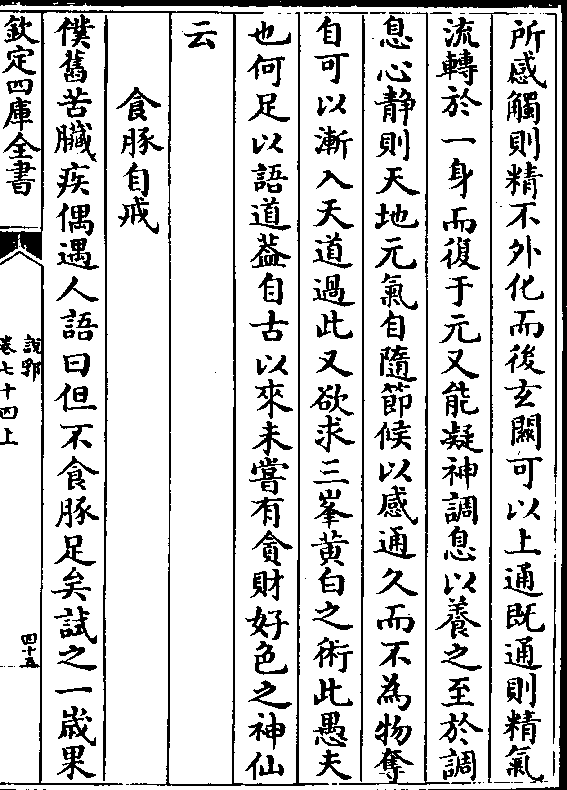 所感觸則精不外化而後玄關可以上通既通則精氣
流轉於一身而復于元又能凝神調息以養之至於調
息心静則天地元氣自隨節候以感通久而不為物奪
自可以漸入天道過此又欲求三峯黄白之術此愚夫
也何足以語道葢自古以來未嘗有貪財好色之神仙
云
食豚自戒
僕舊苦臟疾偶遇人語曰但不食豚足矣試之一嵗果
欽定四庫全書
說郛
卷七十四上
四十五